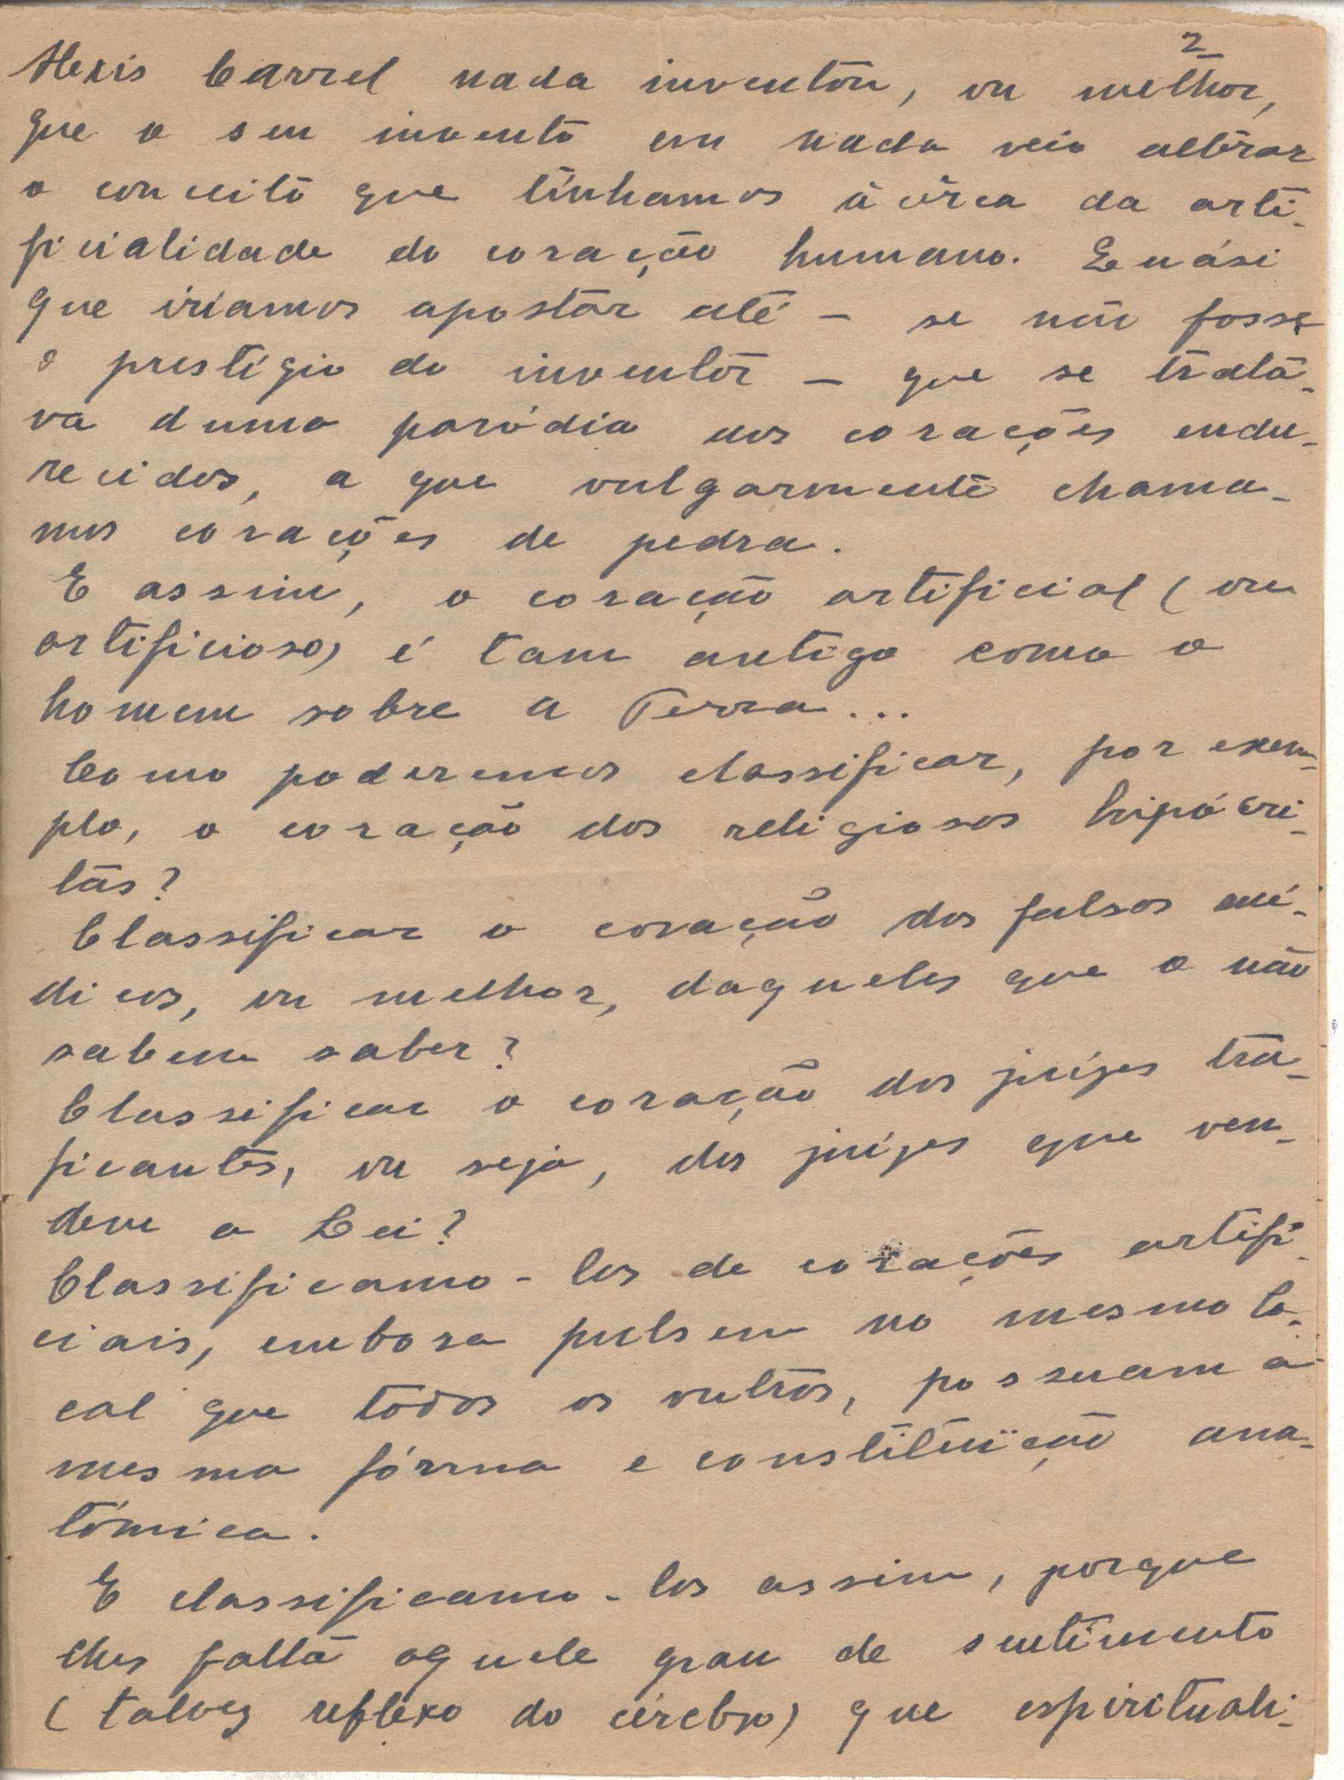 2
Alexis Carrel nada inventou, ou melhor,
que o seu invento em nada veio alterar
o conceito que tinhamos àcêrca da arti-
ficialidade do coração humano. E uási
que iriamos apostar até — se não fosse
o prestígio do inventor — que se trata-
va duma paródia aos corações endu-
recidos, a que vulgarmente chama-
mos corações de pedra.
E assim, o coração artificial (ou
artificioso) é tam antigo como o
homem sobre a Terra...
Como poderemos classificar, por exem-
plo, o coração dos religiosos hipócri-
tas?
Classificar o coração dos falsos mé-
dicos, ou melhor, daqueles que o não
sabem saber?
Classificar o coração dos juízes tra-
ficantes, ou seja, dos juízes que ven-
dem a Lei?
Classificamo-los de corações artifi-
ciais, embora pulsem no mesmo lo-
cal que todos os outros, possuam a
mesma fórma e constituïção ana-
tómica.
E classificamo-los assim, porque
lhes falta aquele grau de sentimento
(talvez reflexo do cérebro) que espirituali-